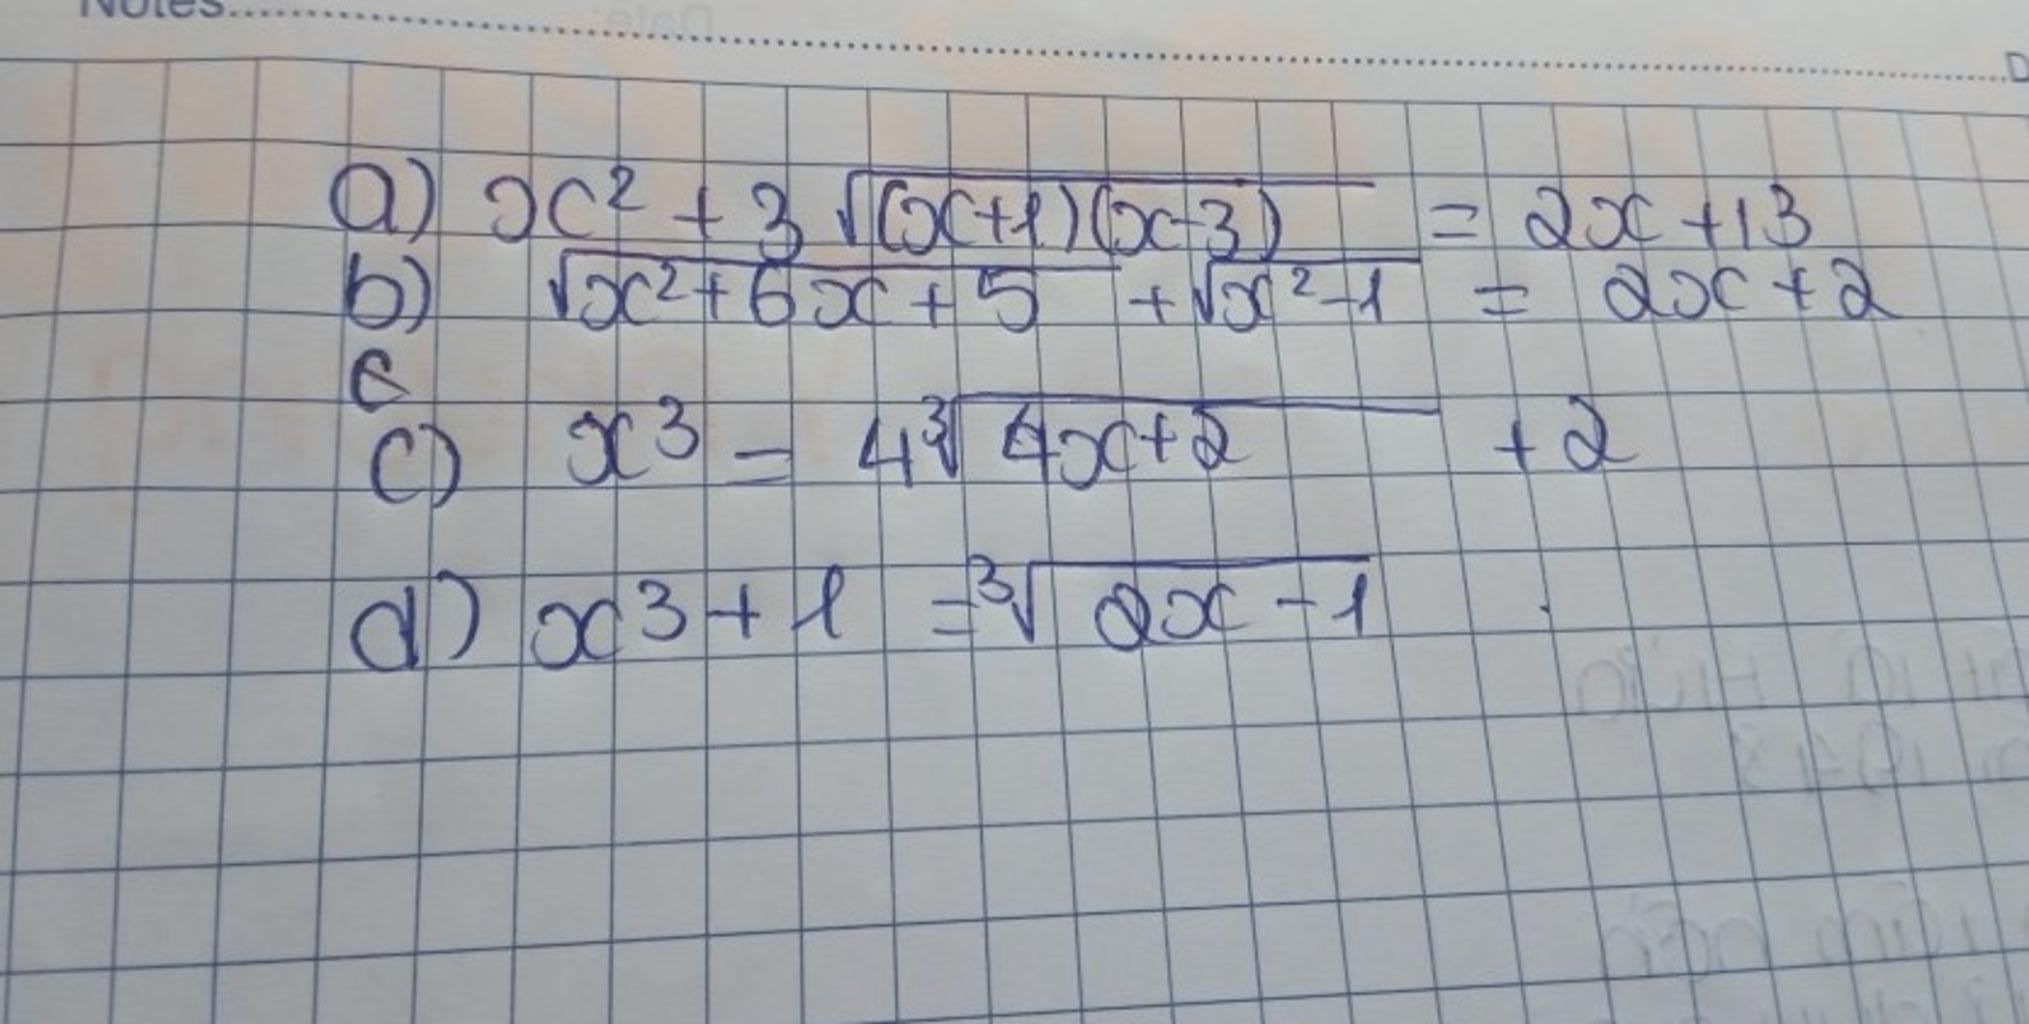 Notes
a) x² + 3√((x+1)(x-3)) = 2x+13
b) √(x²+6x+5) + √(x²-1) = 2x+2
c
c) x³ = 4∛(4x+2) + 2
d) x³+1 = ∛(2x-1)